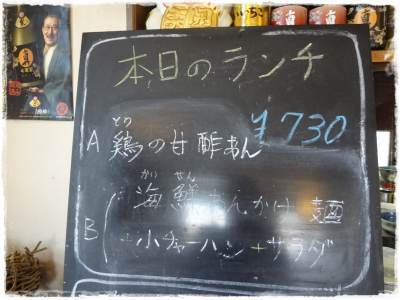 本日のランチ
¥730
とり
A 鶏の甘酢あん
かい せん
海鮮あんかけ麺
B +小チャーハン+サラダ